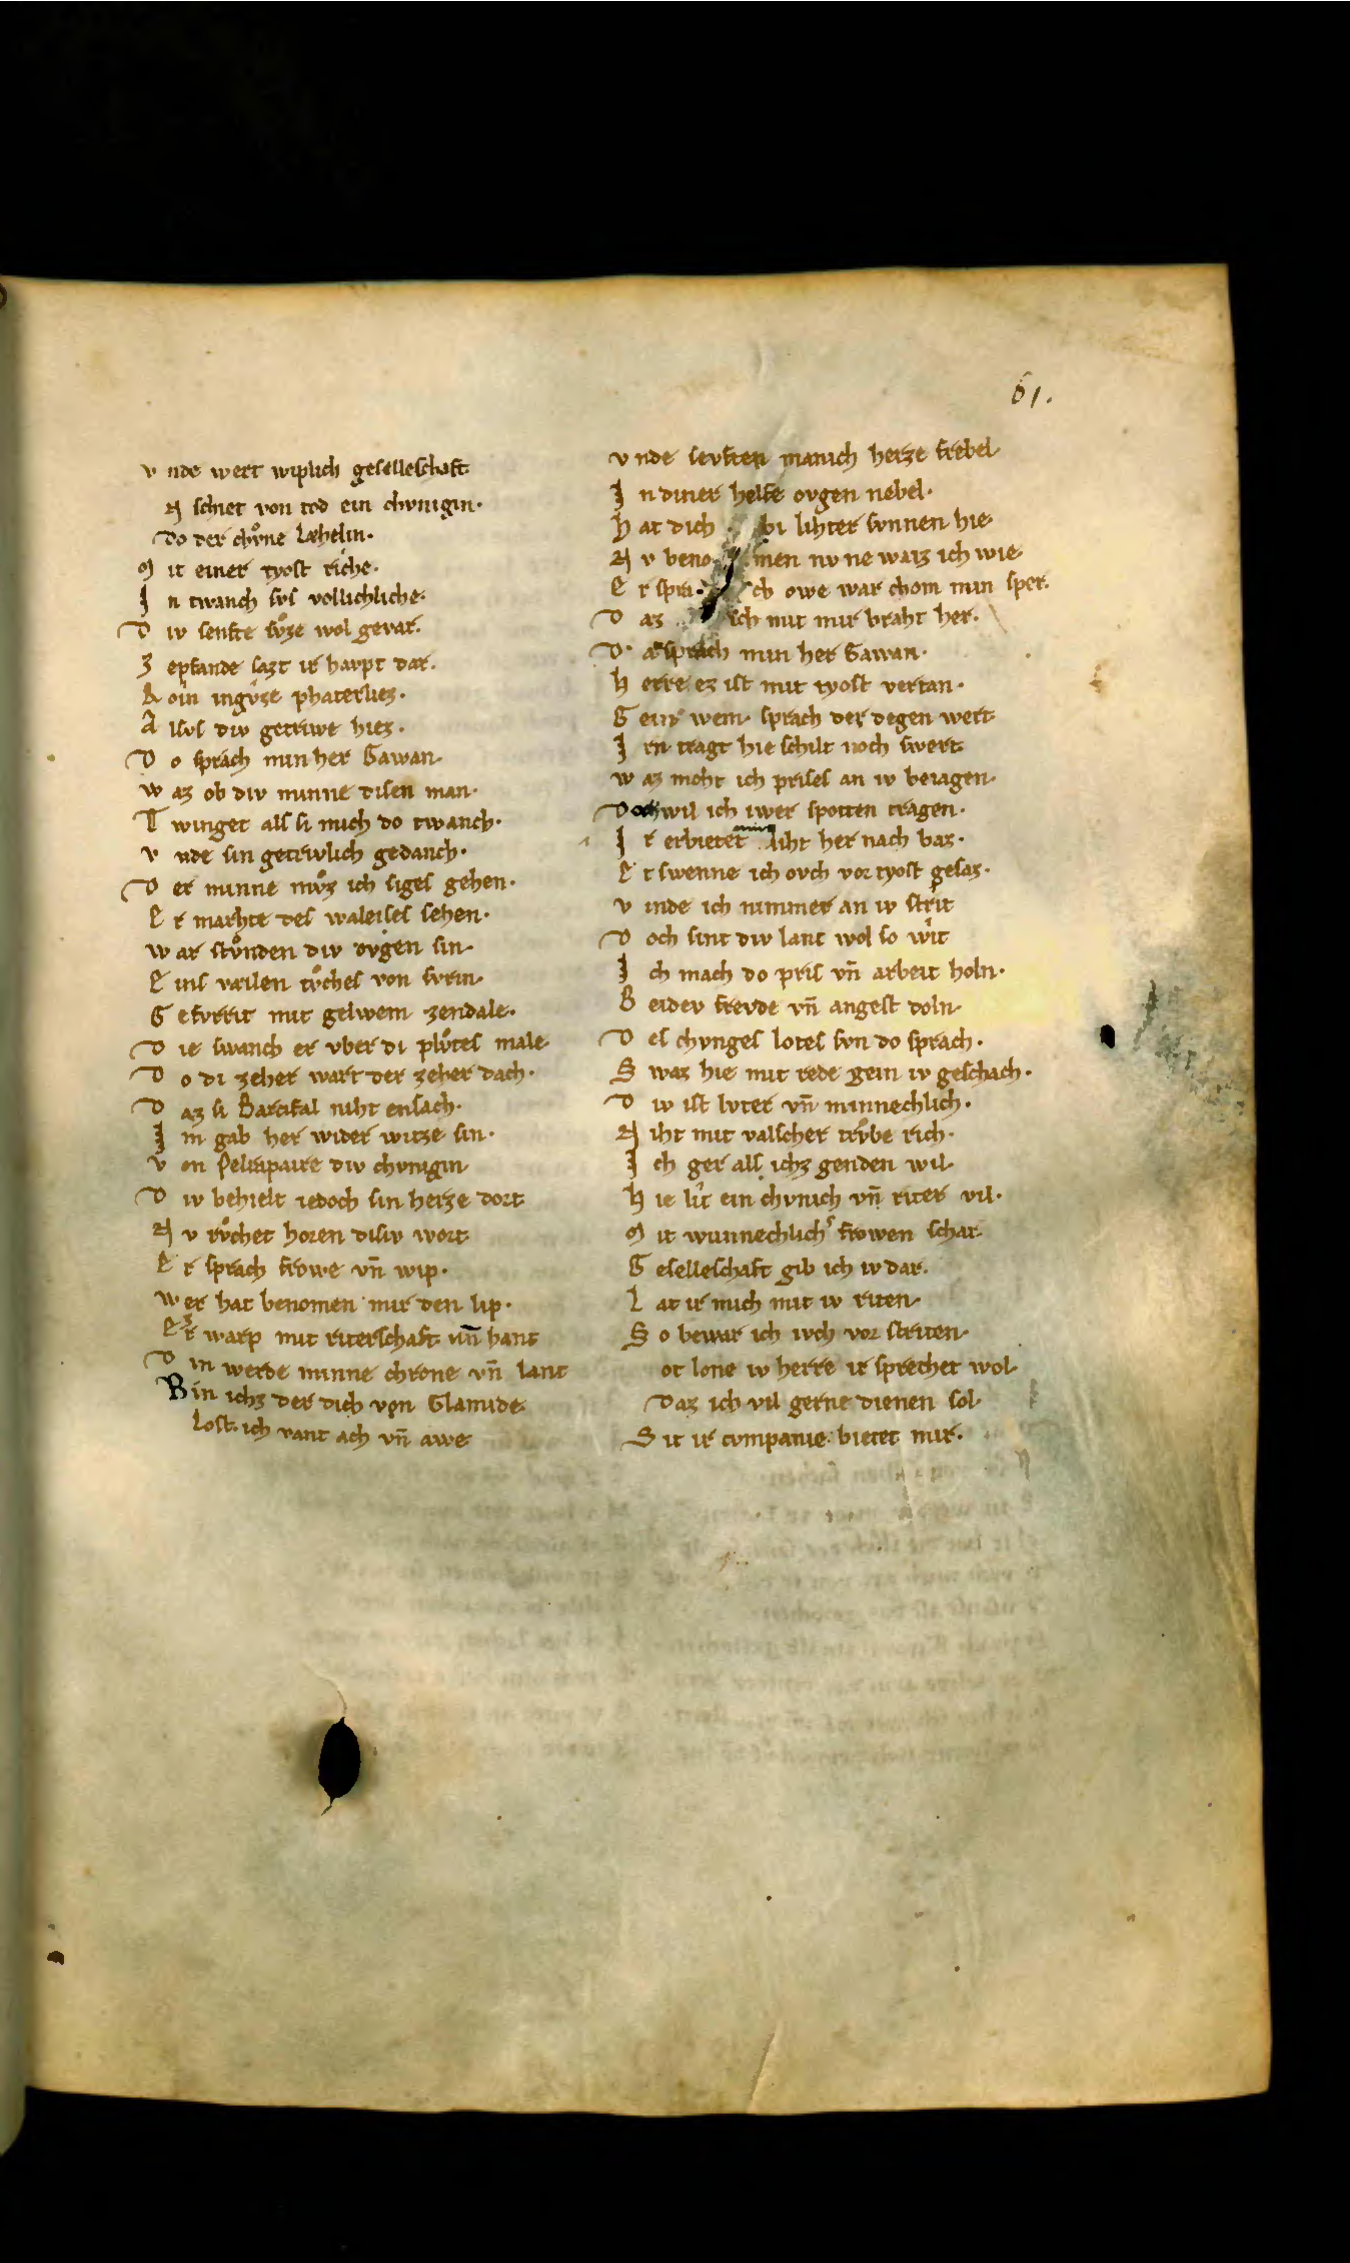 61.
v nde wert wiplich geselleschaft
N schiet von tod ein chvnigin·
Do der chvͦne Læhelin·
M it einer tyost riche·
J n twanch svs vollichliche·
D iv senfte svͦze wol gevar·
Z epfande sazt ir havpt dar·
R oin ingvͦse phaterliez·
A lsvs div getriwe hiez·
D o sprach min her Gawan·
w az ob div minne disen man·
T winget als si mich do twanch·
v nde sin getriwlich gedanch·
D er minne mvͦz ich siges gehen·
E r marhte des waleises sehen·
w ar stvͦnden div ovgen sin·
E ins væilen tvͦches von svrin·
G efvrrit mit gelwem zendale·
D ie swanch er vber di plvͦtes male·
D o di zeher wart der zeher dach·
D az si Parcifal niht ensach·
J m gab her wider witze sin·
v on Pelrapaire div chvnigin
D iv behielt iedoch sin herze dort
N v rvͦchet horen disiv wort
E r sprach frowe vn̄ wip·
w er hat benomen mir den lip·
E r warp mit riterschaft min hant
D in werde minne chrone vn̄ lant
Bin ichz der dich von Clamide
Lost· ich vant ach vn̄ awe
v nde sevften manich herze frebel
J n diner helfe ovgen nebel·
H at dich bi lihter svnnen hie
N v beno men nv ne waiz ich wie
E r spra ch owe war chom min sper·
D az ich mit mir braht her·
D· a sprach min her Gawan·
H erre ez ist mit tyost vertan·
G ein wem· sprach der degen wert
J rn tragt hie schilt noch swert
w az moht ich prises an iv beiagen·
Doch wil ich iwer spotten tragen·
J r erbietet mirz liht her nach baz·
E r swenne ich ovch vor tyost gesaz·
v inde ich nimmer an iv strit
D och sint div lant wol so wit
J ch mach do pris vn̄ arbeit holn·
B eidev frevde vn̄ angest doln·
D es chvnges lotes svn do sprach·
S waz hie mit rede gein iv geschach·
D iv ist lvter vn̄ minnechlich·
N iht mit valscher trvͦbe rich·
J ch ger als ichz genden wil·
H ie lit ein chvnich vn̄ riter vil·
M it wunnechlich͛ frowen schar·
G eselleschaft gib ich iv dar·
L at ir mich mit iv riten·
S o bewar ich ivch vor striten·
ot lone iv herre ir sprechet wol·
Daz ich vil gerne dienen sol·
S it ir cvmpanie· bietet mir·